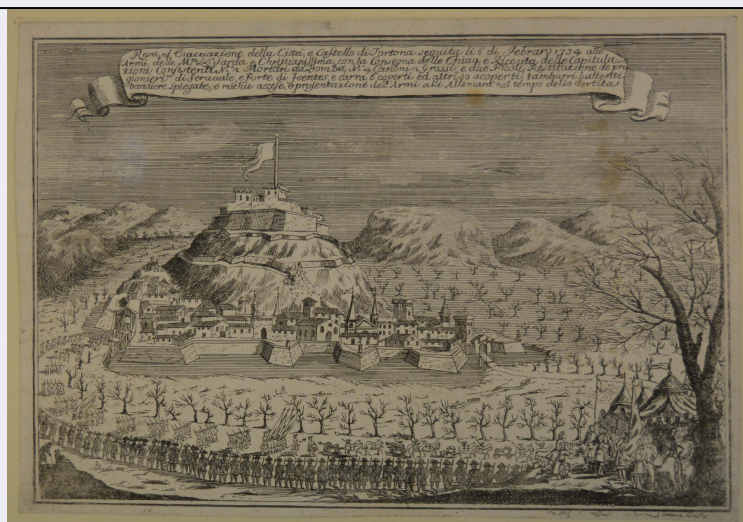 Resa, et Evacuazione della Città, e Castello di Tortona seguita li 6 di Febraro 1734 alle
Armi delle M.M. Sarda e Christianissima, con la Consegna delle Chiavi, e Ricevuta delle Capitula-
zioni Consistenti N. 2 Mortari da Bomba, N. 4 Canoni Grossi, e due Piccoli, Restitutione de pri
gionieri di Seravale, e Forte di Foentes, e carra 6 coperti ed altri 12 scoperti, tamburi battenti
bandiere spiegate, e michie accese, e presentazione dell'Armi alli Allemani nel tempo della Sortita